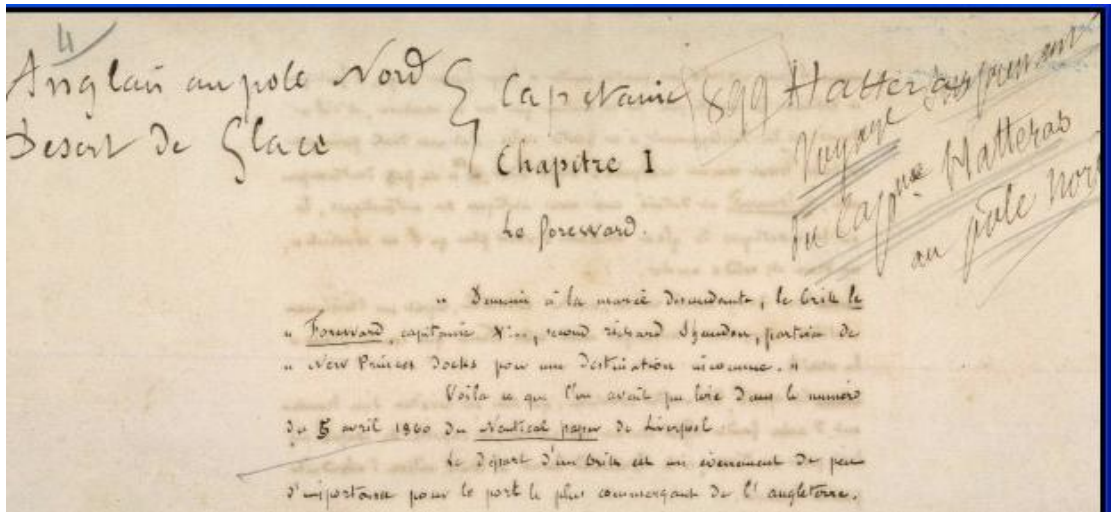 4
Anglais au pole Nord { Capitaine 899 Hatteras
Desert de Glace
Voyage
du Cap^ne Hatteras
au pôle nord
Chapitre I
Le foreward.
" Demain à la marée descendante, le brik le
" Foreward, capitaine K..., second richard Shandon, partira de
" New Princes Docks pour une destination inconnue. "
Voila ce que l'on avait pu lire dans le numéro
du 5 avril 1860 du Nautical paper de Liverpool
Le départ d'un brik est un évènement de peu
d'importance pour le port le plus commerçant de l'angleterre.